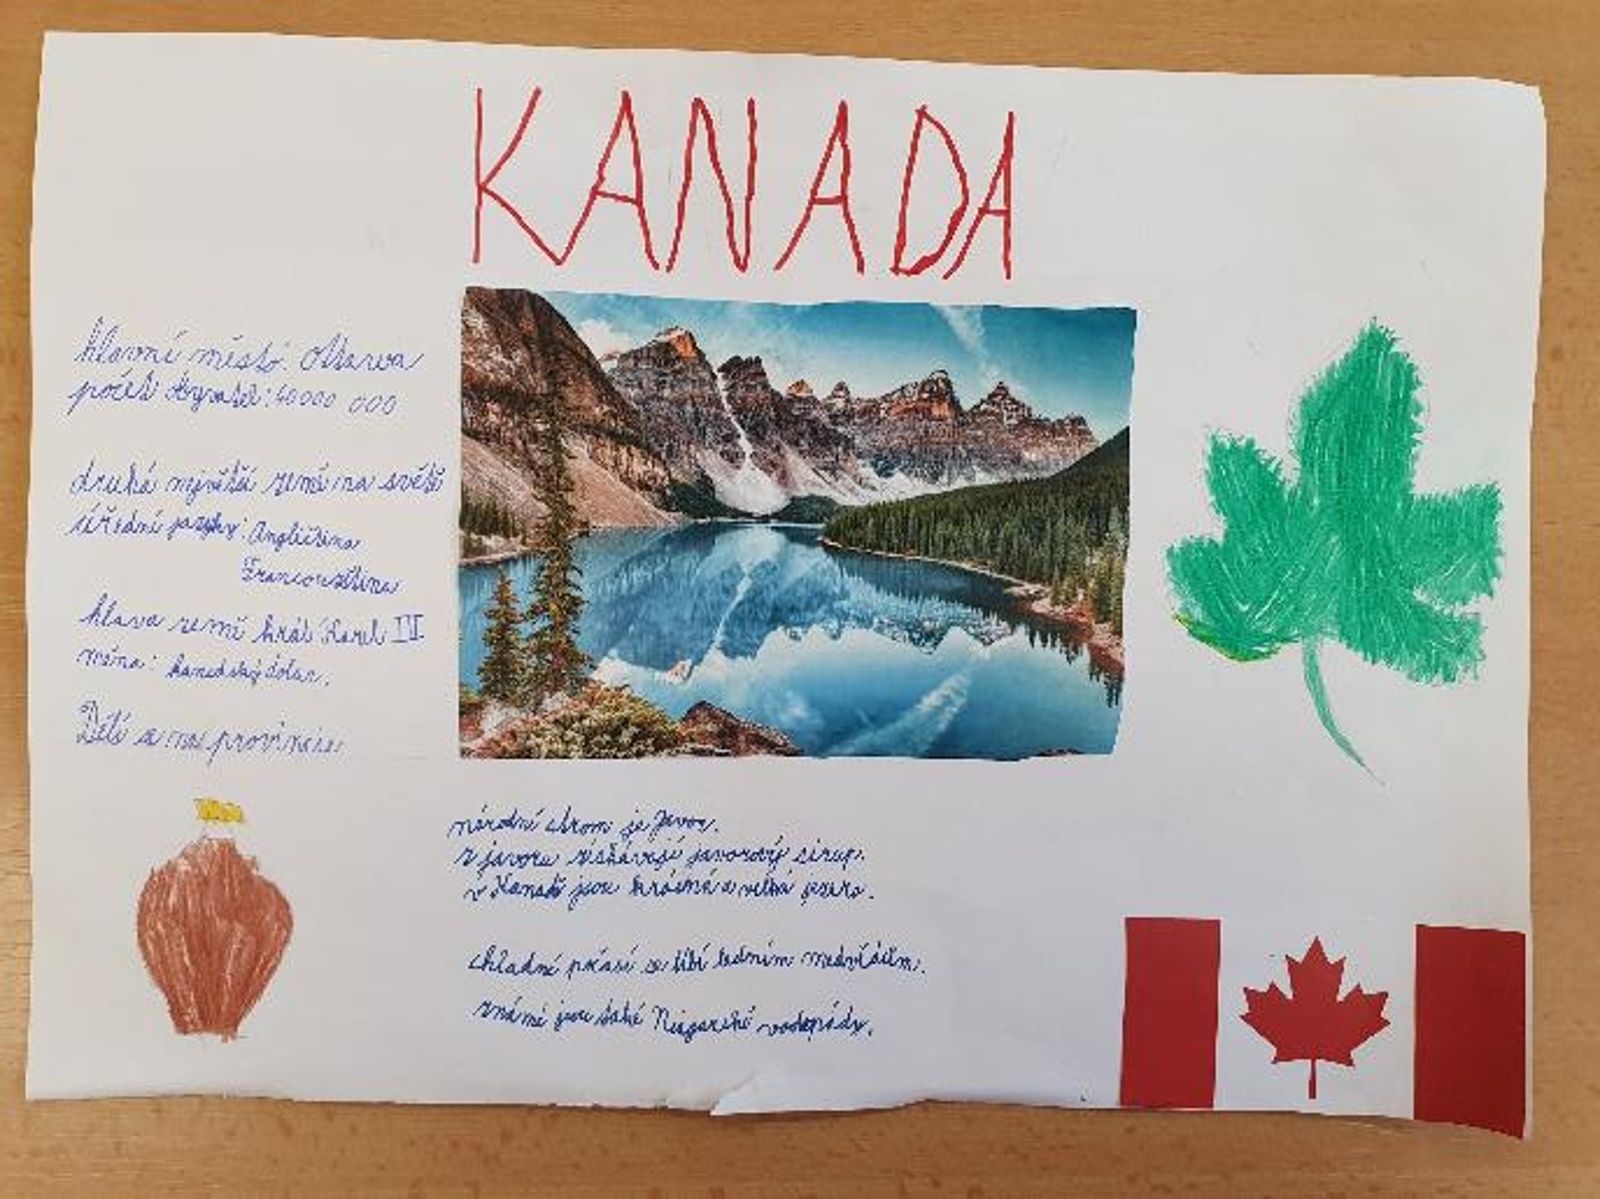 KANADA
hlavní město: Ottawa
počet obyvatel: 40000 000
druhá největší země na světě
úřední jazyky: Angličtina
Francouzština
hlava země král Karel III.
měna: kanadský dolar.
Dělí se na provincie
národní strom je Javor.
z javoru získávají javorový sirup.
v Kanadě jsou krásná a velká jezera.
chladné počasí se líbí ledním medvědům.
známé jsou také Niagarské vodopády.